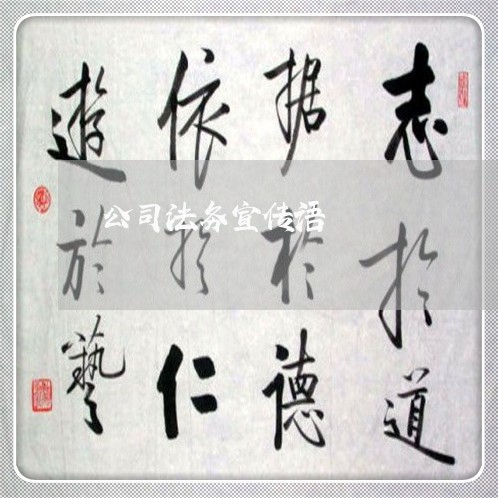 志於道
据於德
依於仁
遊於藝
公司法务宣传语